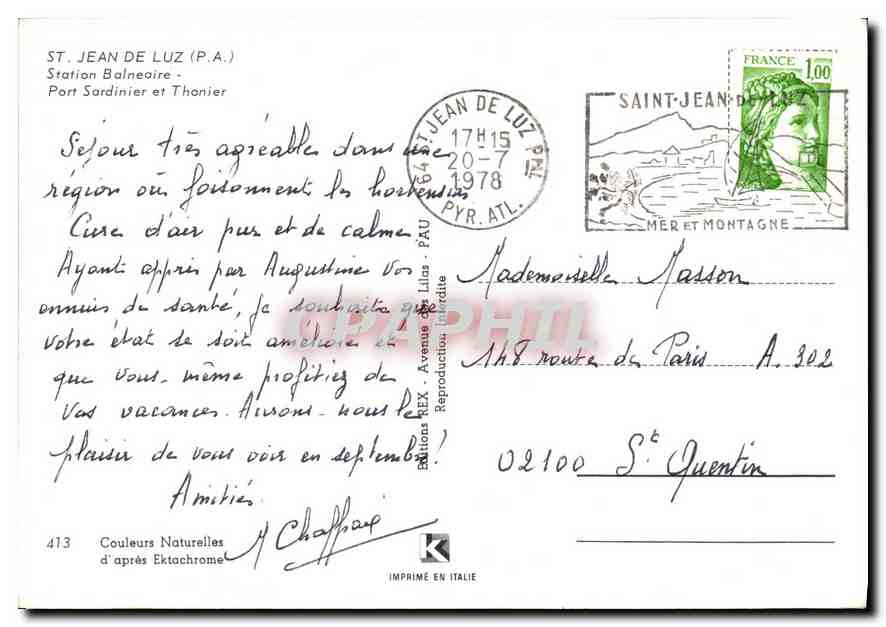 ST. JEAN DE LUZ (P.A.)
Station Balneaire -
Port Sardinier et Thonier
Séjour très agréable dans une
région où foisonnent les hortensias
Cure d'air pur et de calme.
Ayant appris par Augustine vos
ennuis de santé, je souhaite que
votre état se soit amélioré et
que vous-même profitiez de
vos vacances. Aurons-nous le
plaisir de vous voir en septembre!
Amitiés
M Chaffraix
413 Couleurs Naturelles
d'après Ektachrome
Editions REX - Avenue des Lilas - PAU
Reproduction Interdite
64 ST JEAN DE LUZ PPAL
17H15
20-7
1978
PYR. ATL.
SAINT-JEAN-DE-LUZ
MER ET MONTAGNE
FRANCE 1,00
Mademoiselle Masson
148 route de Paris A. 302
02100 St Quentin
K
IMPRIMÉ EN ITALIE
CPAPHIL